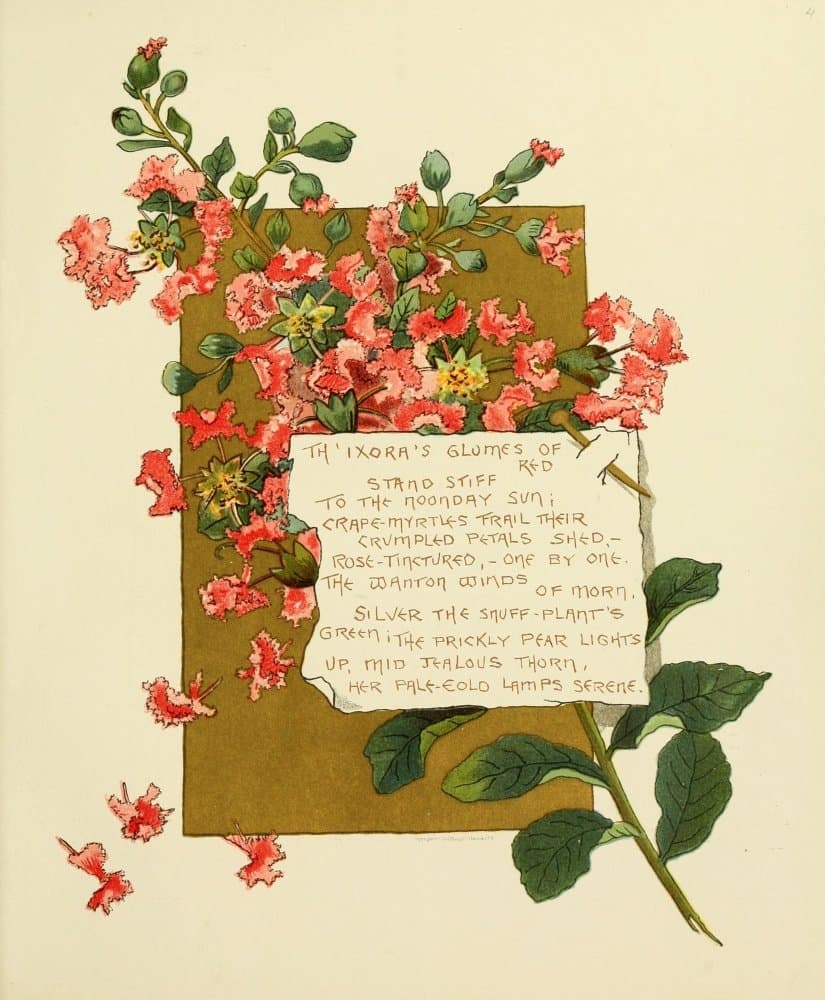 TH'IXORA'S GLUMES OF
RED
STAND STIFF
TO THE NOONDAY SUN;
CRAPE-MYRTLES TRAIL THEIR
CRUMPLED PETALS SHED,-
ROSE-TINCTURED,- ONE BY ONE.
THE WANTON WINDS
OF MORN,
SILVER THE SNUFF-PLANT'S
GREEN; THE PRICKLY PEAR LIGHTS
UP, MID JEALOUS THORN,
HER PALE-GOLD LAMPS SERENE.